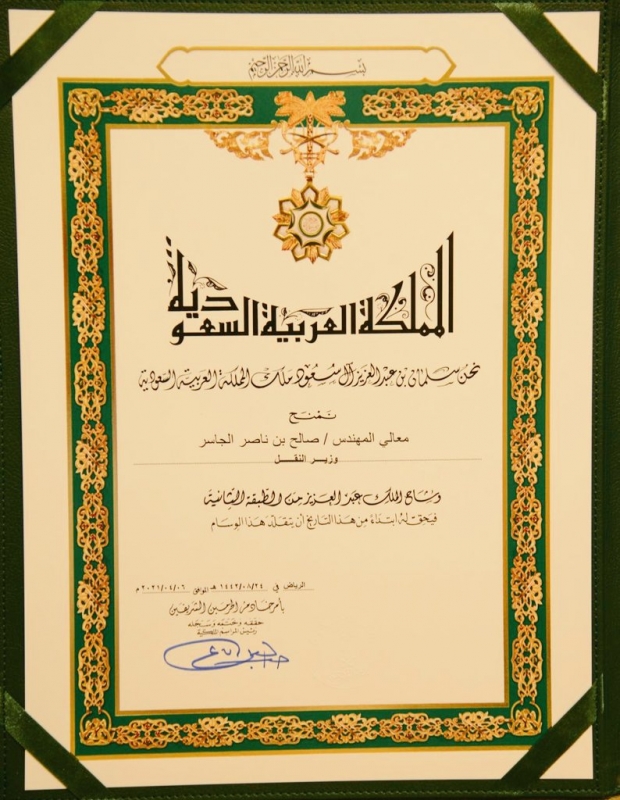 بسم الله الرحمن الرحيم
المملكة العربية السعودية
نحن سلمان بن عبدالعزيز آل سعود ملك المملكة العربية السعودية
نمنح
معالي المهندس / صالح بن ناصر الجاسر
وزير النقل
وشاح الملك عبدالعزيز من الطبقة الثانية
فيحق له ابتداءً من هذا التاريخ أن يتقلد هذا الوسام
الرياض في ١٤٤٢/٠٨/٢٤ هـ الموافق ٢٠٢١/٠٤/٠٦ م
بأمر خادم الحرمين الشريفين
حققه وختمه وسجله
رئيس المراسم الملكية